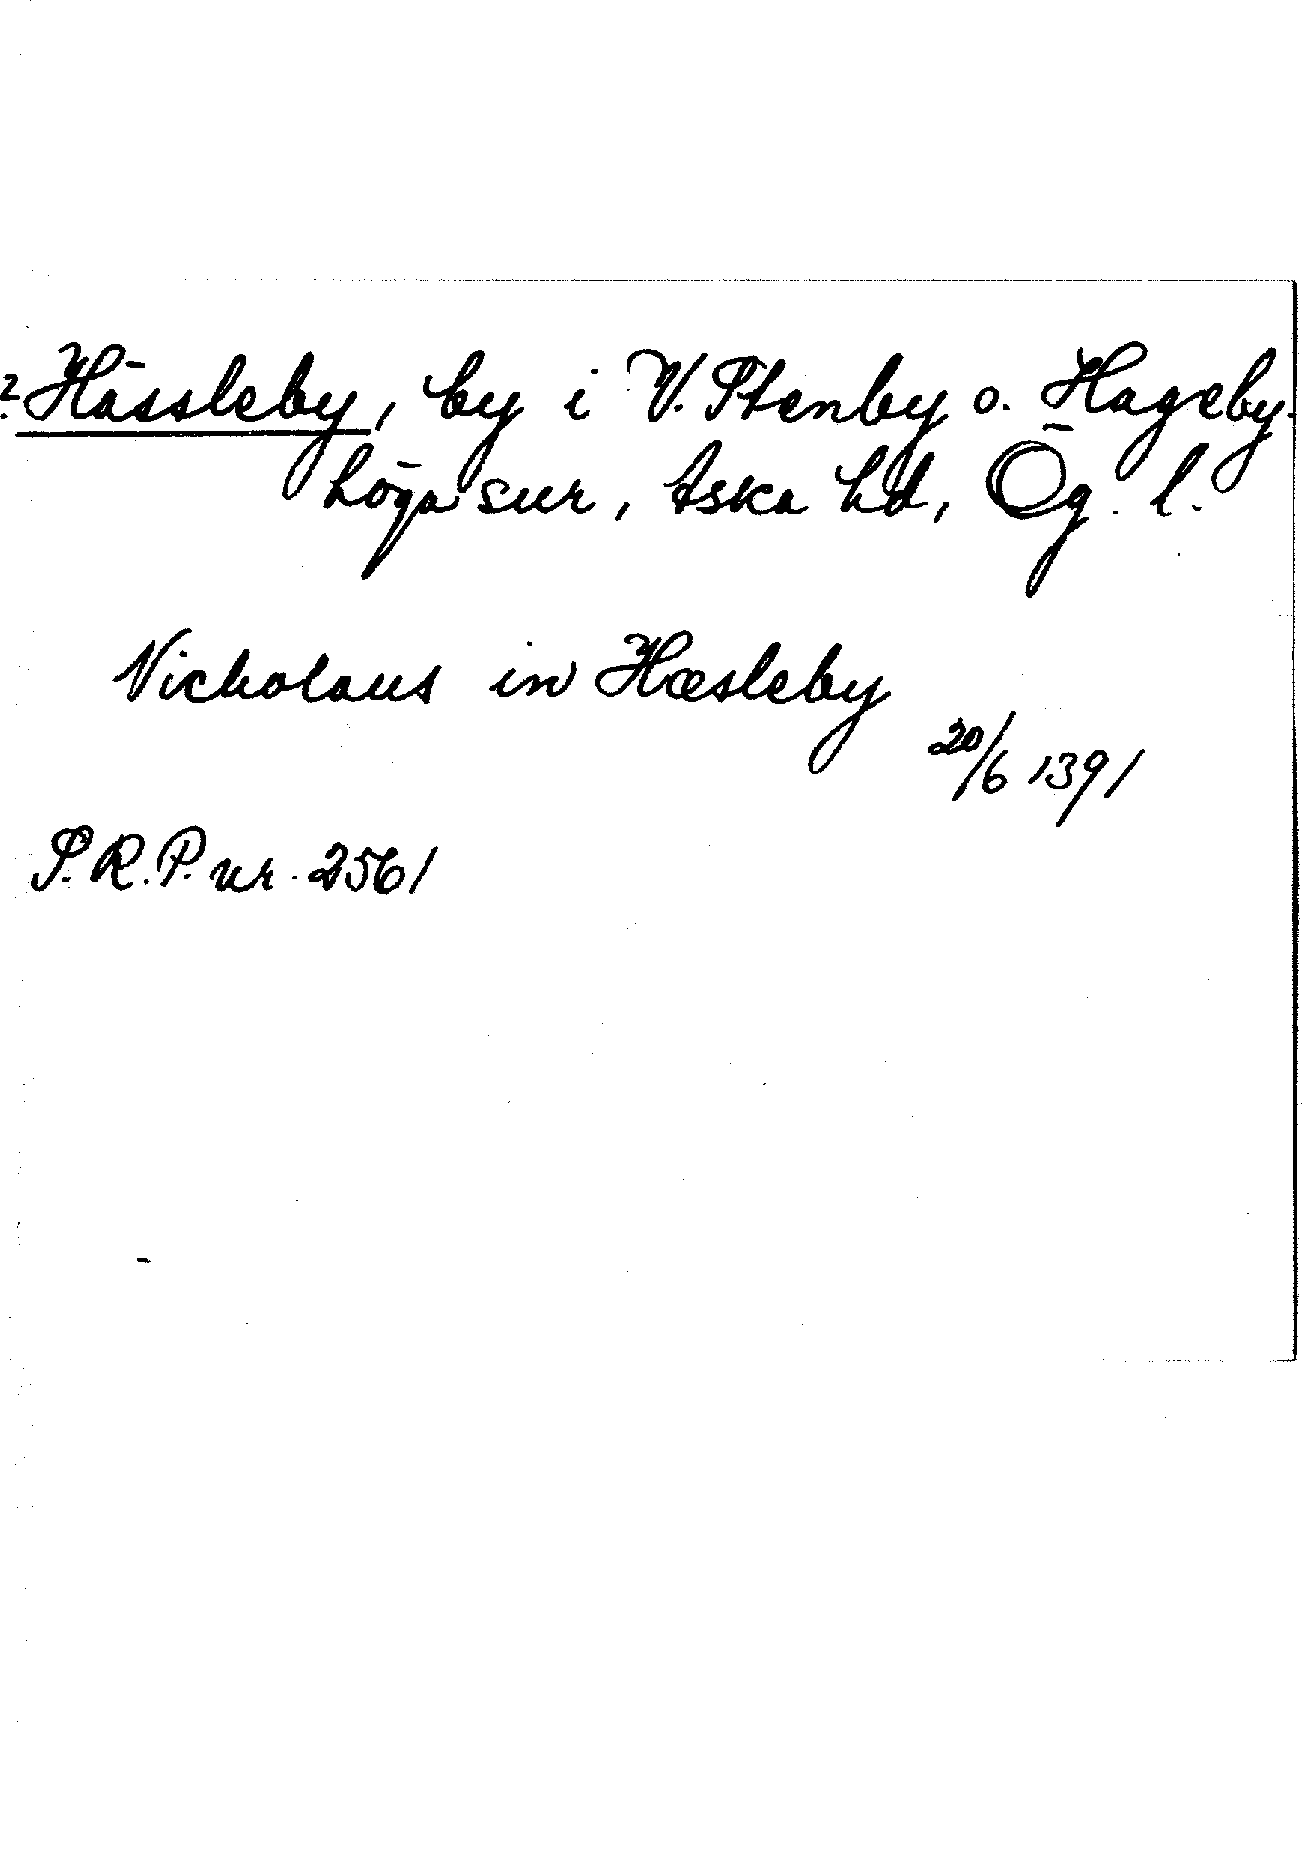 ? Hässleby, by i V. Stenby o. Hageby-
höga snr, Aska hd, Ög. l.
Nicholaus in Hæsleby
20/6 1391
S.R.P. nr. 2561